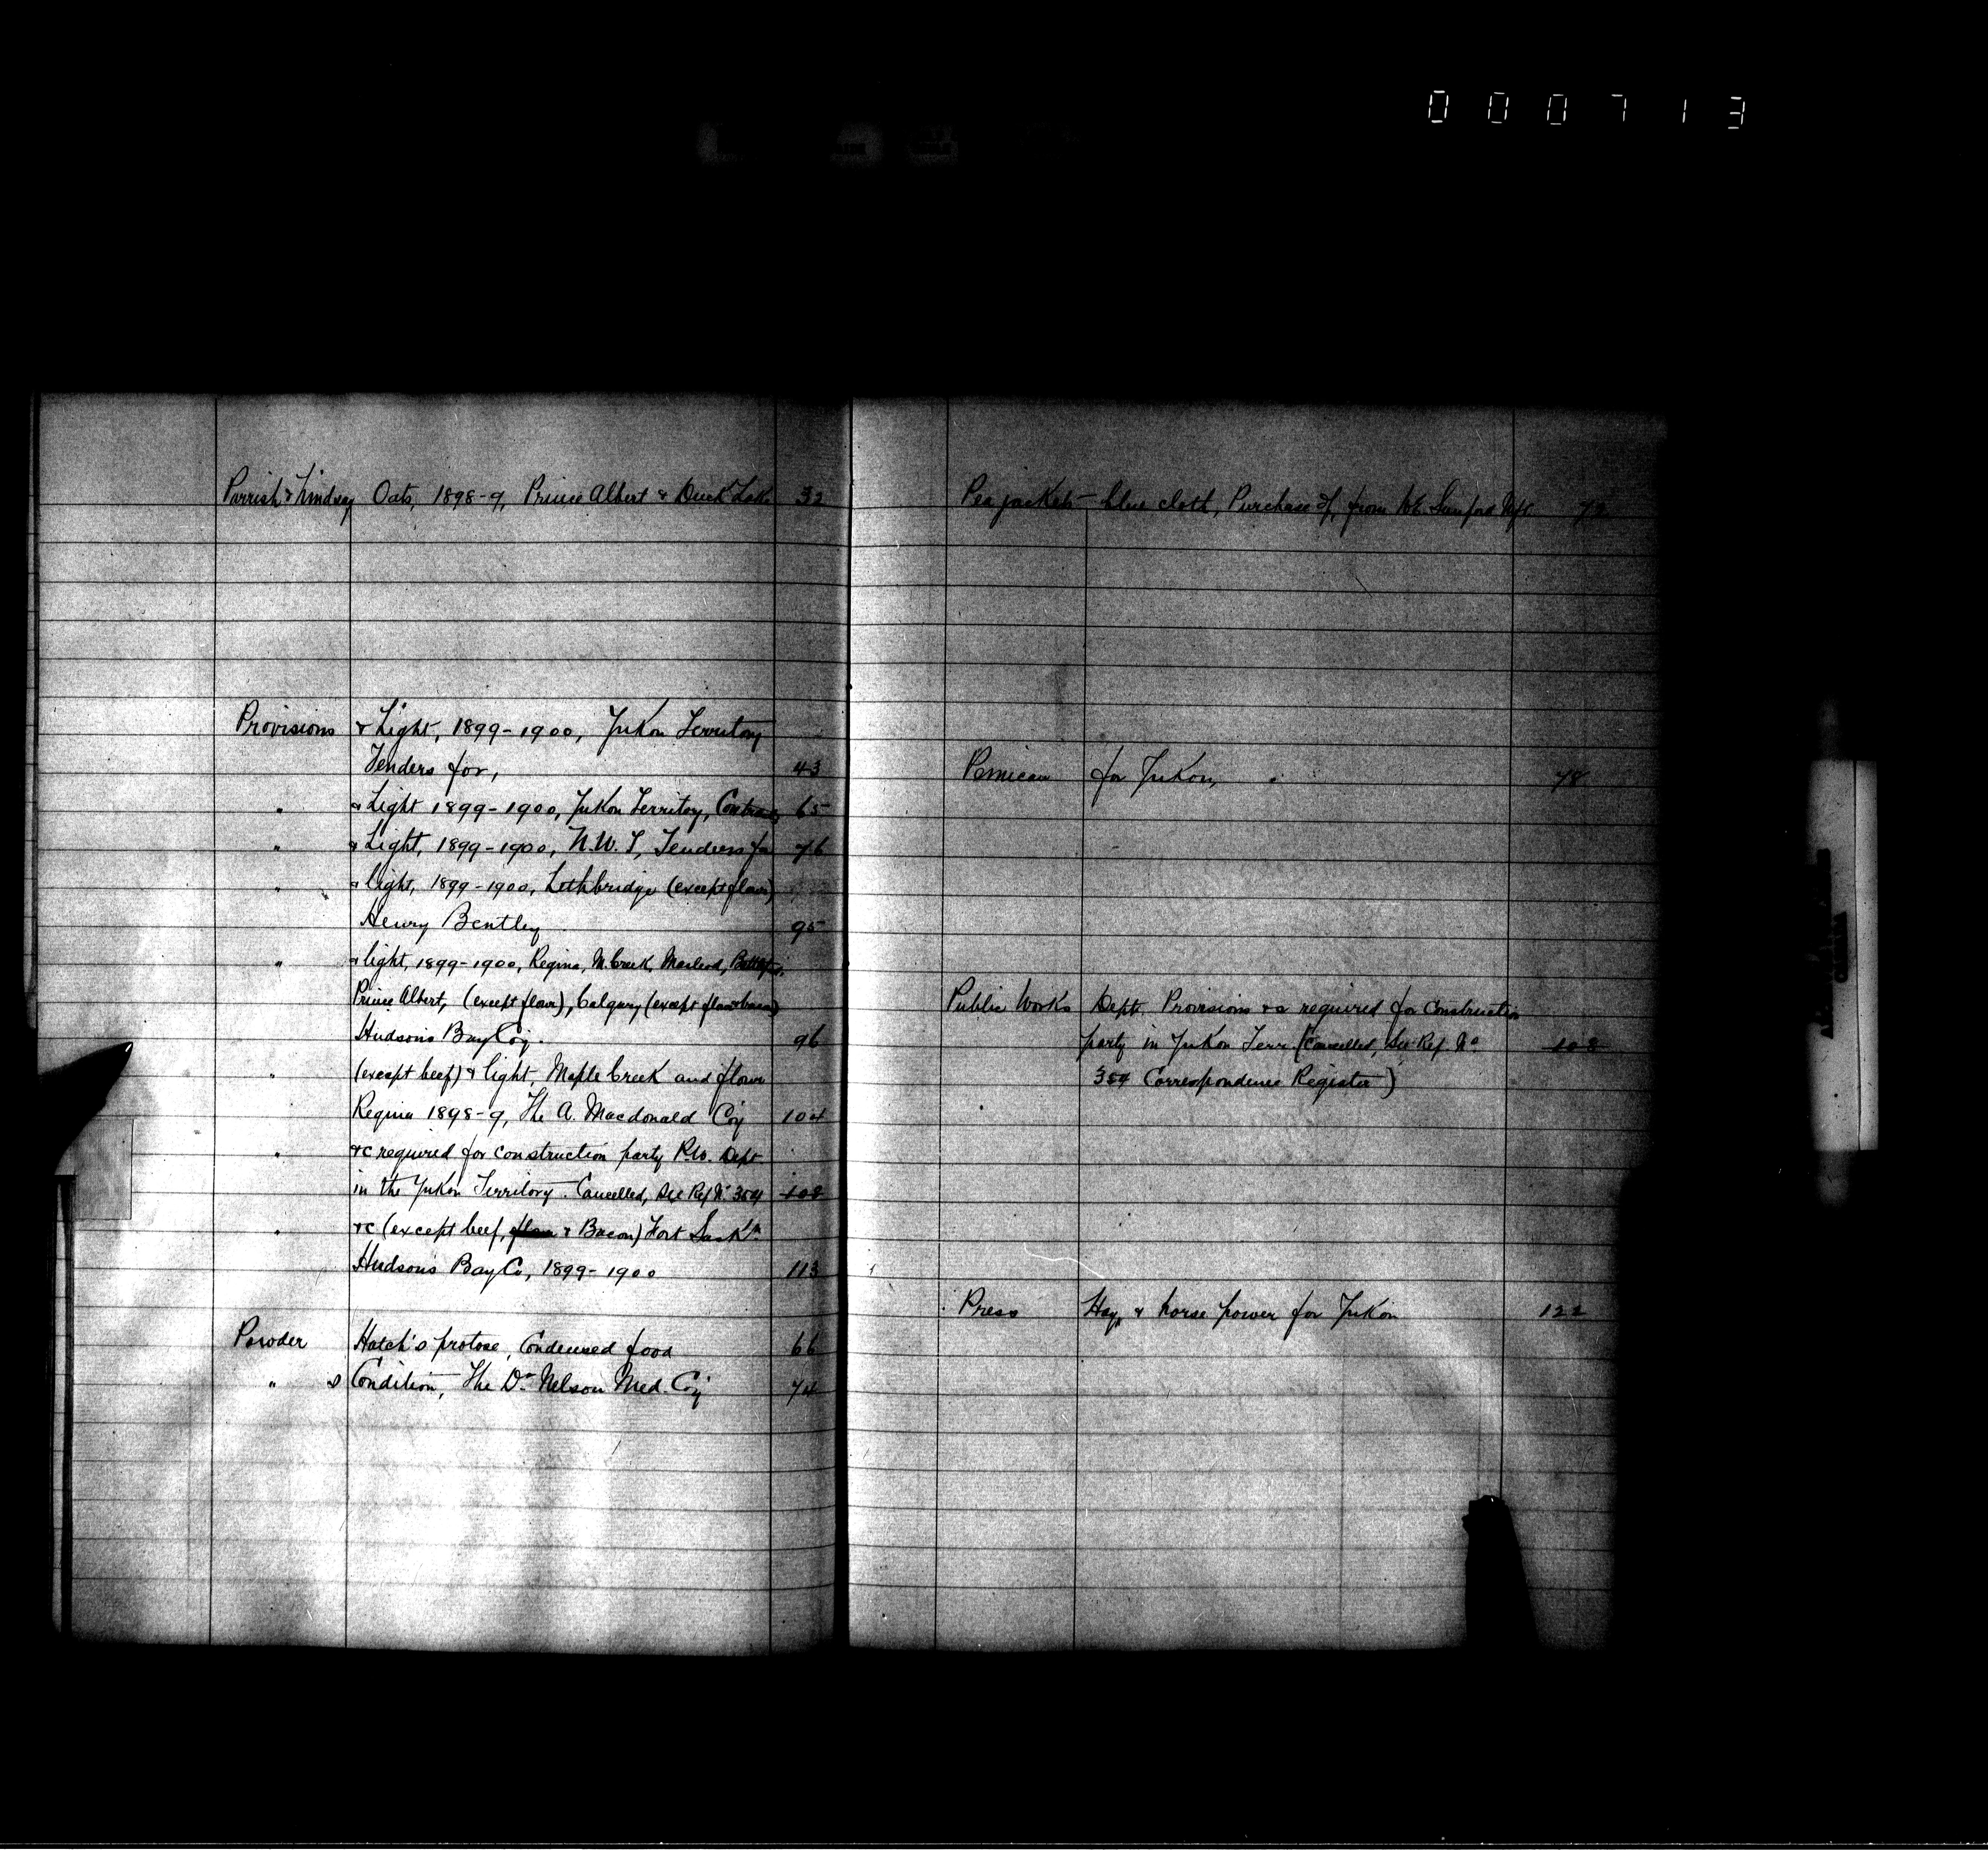 000713
Parrish & Lindsay Oats, 1898-9, Prince Albert & Duck Lake 32
Provisions & Light, 1899-1900, Yukon Territory
Tenders for, 43
" & Light 1899-1900, Yukon Territory, Contracts 65
" & Light, 1899-1900, N.W.T, Tenders for 76
" & light, 1899-1900, Lethbridge (except flour)
Henry Bentley 95
" & light, 1899-1900, Regina, M. Creek, Macleod, Battlefd,
Prince Albert, (except flour), Calgary (except flour & bacon)
Hudsons Bay Coy. 96
" (except beef) & light Maple Creek and flour
Regina 1898-9, The A. Macdonald Coy 104
" &c required for construction party P.W. Dept
in the Yukon Territory. Cancelled, See Ref. No 354 108
" &c (except beef, flour & Bacon) Fort Saskn
Hudson's Bay Co, 1899-1900 113
Powder Hatch's protose, Condensed food 66
" s Condition, The Dr Nelson Med. Coy 74
Pea jackets - blue cloth, Purchase of, from W.E. Sanford Mfg. 72
Pemican for Yukon, 78
Public Works Dept. Provisions &c required for Construction
party in Yukon Terr. (Cancelled, See Ref. No 108
354 Correspondence Register)
Press Hay, & horse power for Yukon 122